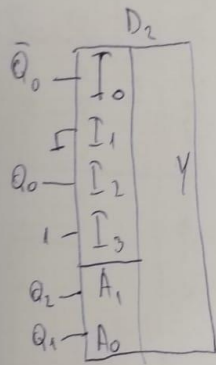 D₂
Q̄₀ I₀
I₁
Q₀ I₂ Y
1 I₃
Q₂ A₁
Q₁ A₀